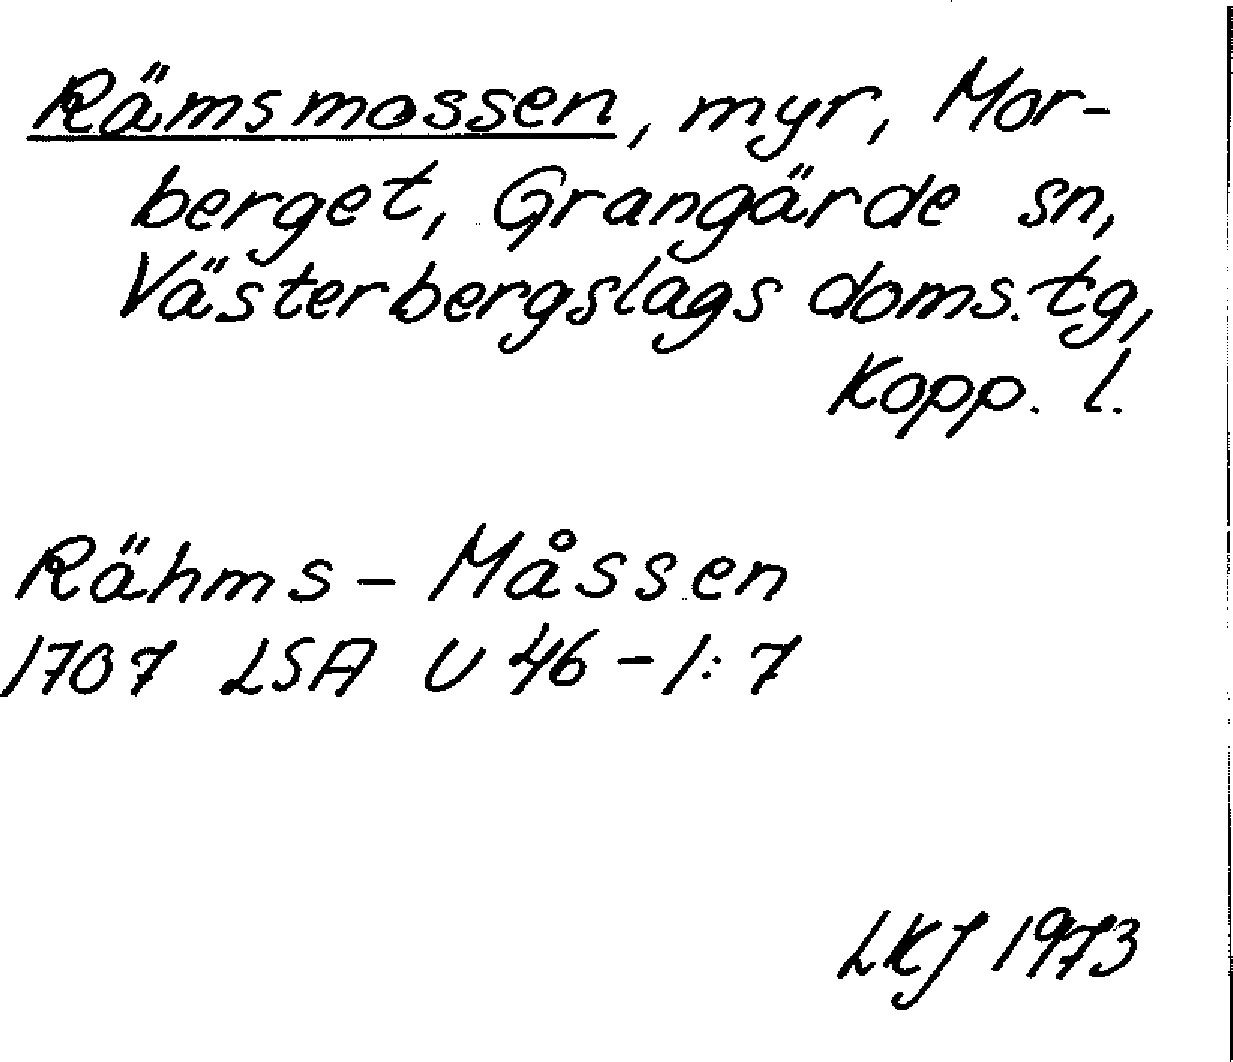 Rämsmossen, myr, Mor-
berget, Grangärde sn,
Västerbergslags doms.tg,
Kopp. l.
Rähms-Måssen
1707 LSA U 46-1:7
LKJ 1973